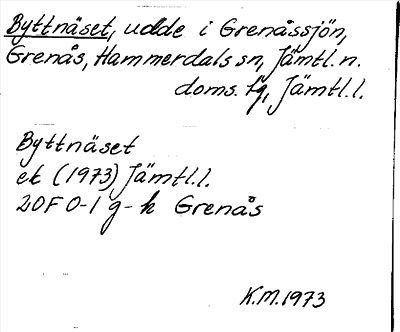 Byttnäset, udde i Grenåssjön,
Grenås, Hammerdals sn, Jämtl. n.
doms. fg, Jämtl. l.
Byttnäset
ek (1973) Jämtl. l.
20F 0-1 g-h Grenås
K.M. 1973